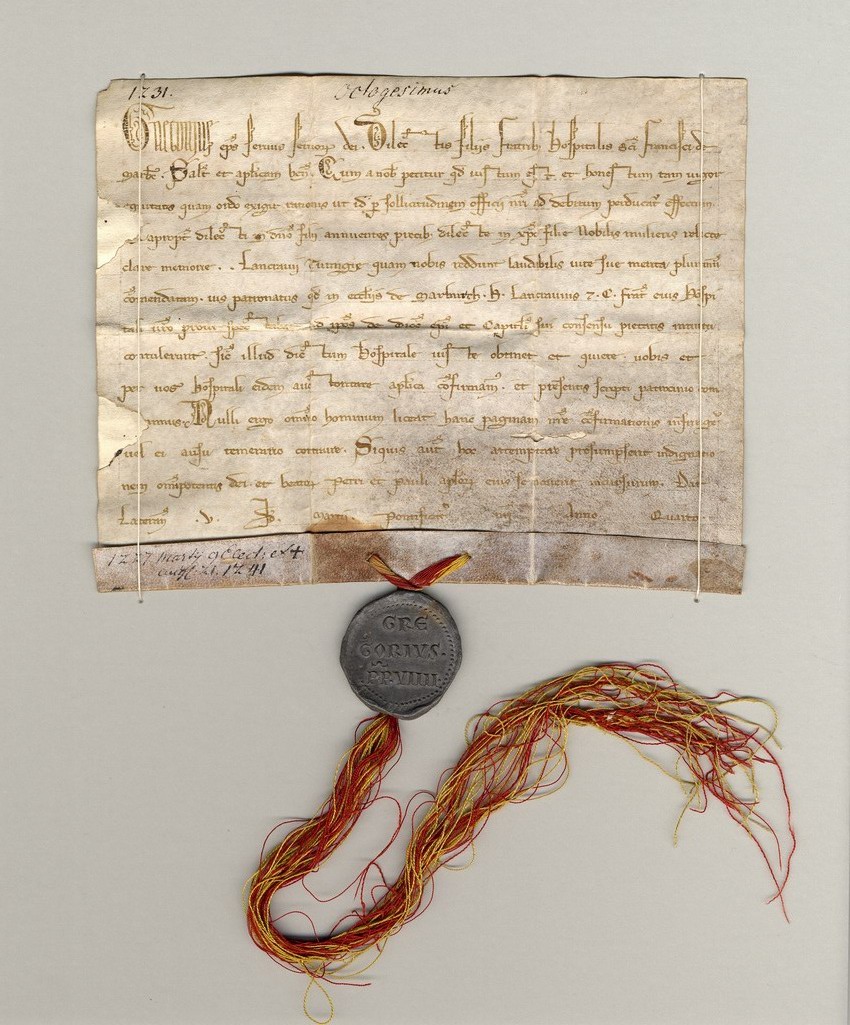 1231. octogesimus
Gregorius eps seruus seruor dei. Dilectis filijs fratrib hospitalis sci francisci de
Salt et aplicam ben. Cum a nob petitur qd iustum est et honestum tam uigor
equitatis quam ordo exigit rationis ut id p sollicitudinem officij nri ad debitum perducat effectum.
dilecti in dno filij annuentes precib dilecte in xpo filie Nobilis mulieris relicte
clare memorie . . Lancravij Turingie quam nobis reddunt laudabilis uite sue merita plurimum
comendatam. ius patronatus qd in ecclijs de Marburch. H. Lancrauius 7. C. frat eius hospi
tali uro et Capituli sui consensu pietatis intuitu
contulerunt. sic illud dictum hospitale iuste obtinet et quiete. uobis et
per uos hospitali eidem auctoritate aplica confirmam. et presentis scripti patrocinio com
munimus. Nulli ergo omnino hominum liceat hanc paginam nre confirmationis infringe
uel ei ausu temerario contraire. Siquis aut hoc attemptare presumpserit indignatio
nem omnipotentis dei et beator Petri et Pauli aplor eius se nouerit incursurum. Dat
Lateran . V. pontificat nri Anno Quarto.
1227 martij 9 elect: ex+
aug. 21. 1241
GRE
GORIVS.
PP.VIIII.